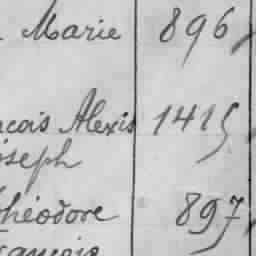 Marie 896
ncois Alexis 1415
oseph
héodore 897
rançois